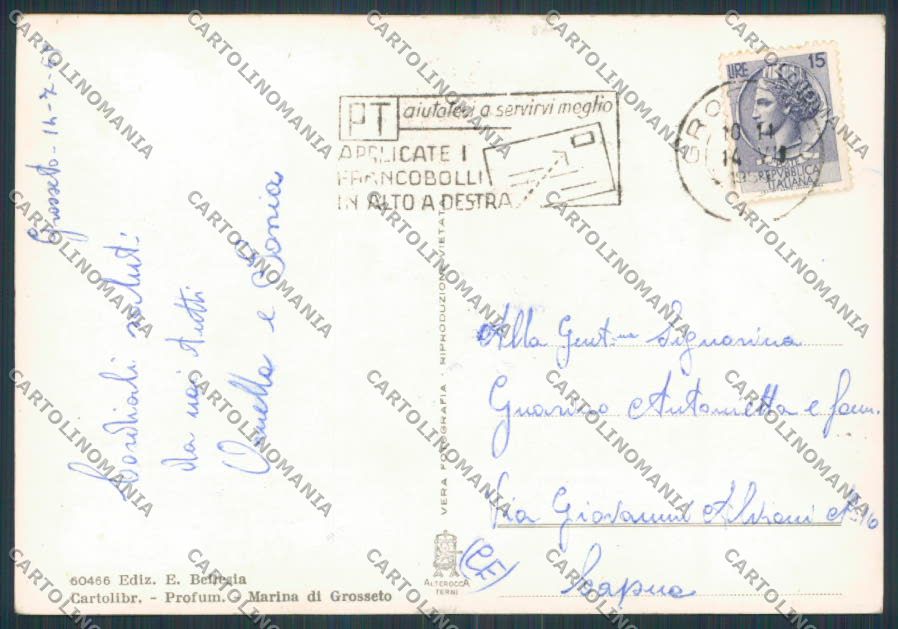 Grosseto - 14-7-6
Cordiali saluti
da noi tutti
Ornella e Sonia
PT aiutateci a servirvi meglio
APPLICATE I
FRANCOBOLLI
IN ALTO A DESTRA
LIRE 15
10-11
14 VII
REPVBBLICA
ITALIANA
VERA FOTOGRAFIA - RIPRODUZIONE VIETATA
Alla Gent.ma Signorina
Guarino Antonietta e fam.
Via Giovanni
Capua
(P.F.)
60466 Ediz. E. Bellesia
Cartolibr. - Profum. - Marina di Grosseto
ALTEROCCA
TERNI
CARTOLINOMANIA